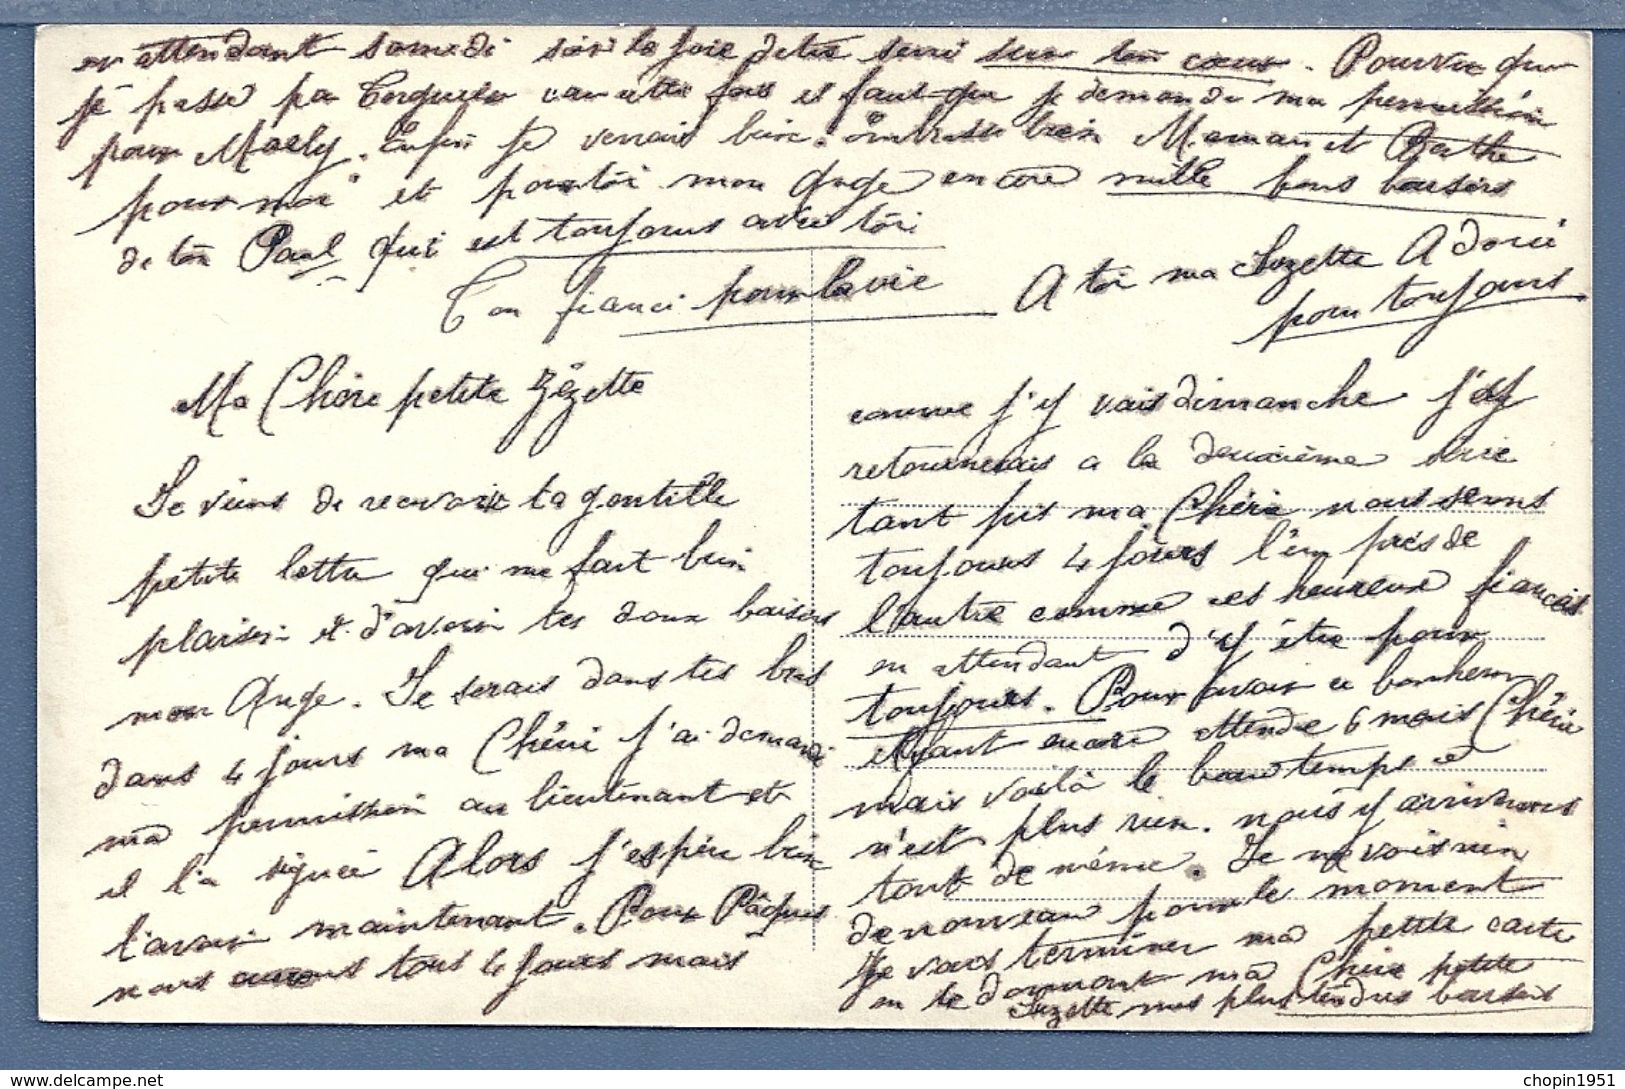 Ma Chère petite Zézette
Je viens de recevoir ta gentille
petite lettre qui me fait bien
plaisir et d'avoir tes doux baisers
mon Ange. Je serais dans tes bras
dans 4 jours ma Chérie j'ai demandé
ma permission au lieutenant et
il l'a signée Alors j'espère bien
l'avoir maintenant. Pour Pâques
nous aurons tous 4 jours mais
comme j'y vais dimanche j'y
retournerais a la deuxième série
tant pis ma Chérie nous serons
toujours 4 jours l'un près de
l'autre comme des heureux fiancés
en attendant d'y être pour
toujours. Pour avoir ce bonheur
avant encore attendre 6 mois Chérie
mais voilà le beau temps ce
n'est plus rien. nous y arriverons
tout de même. Je ne vois rien
de nouveau pour le moment
Je vais terminer ma petite carte
en te donnant ma Chère petite
Suzette mes plus tendres baisers
en attendant samedi soir la joie detre serré sur ton cœur. Pourvu que
je passe par car cette fois il faut que je demande ma permission
pour Maely. Enfin je verrais bien. Embrasse bien Maman et Berthe
pour moi et pour toi mon Ange encore mille bons baisers
de ton Paul qui est toujours avec toi
Ton fiancé pour la vie
A toi ma Suzette Adorée
pour toujours
chopin1951